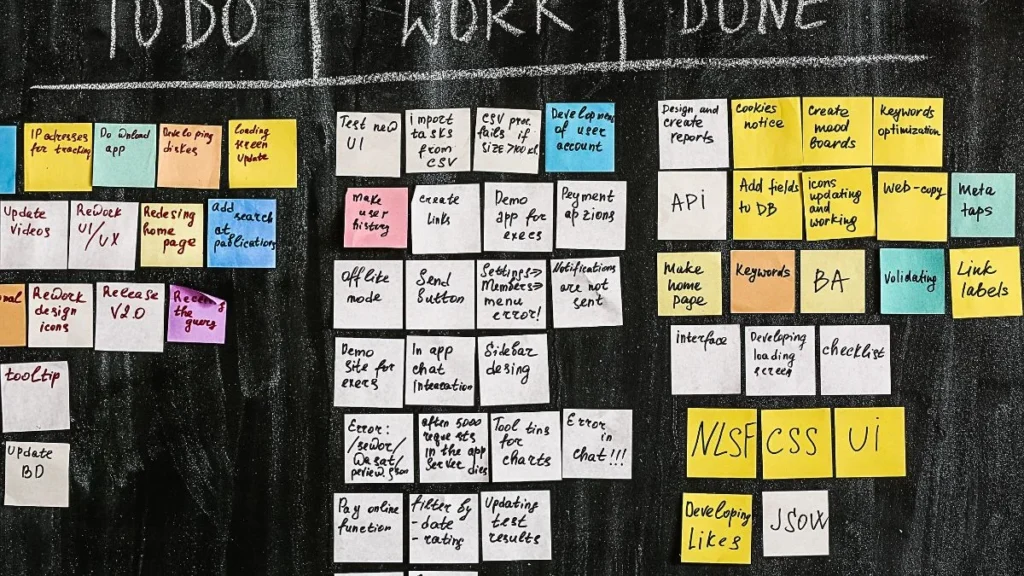 TO DO
WORK
DONE
IP adresses
for tracking
Download
app
Developing
diskes
Loading
screen
update
Update
videos
Rework
UI/UX
Redesing
home
page
add search
at
publications
Rework
design
icons
Release
V2.0
the
query
tooltip
Update
BD
Test new
UI
import
tasks
from
CSV
CSV proc.
fails if
Development
of user
account
make
user
history
create
links
Demo
app for
execs
Peyment
apzions
Offlite
mode
Send
button
Settings=>
Members=>
menu
error!
Notifications
are not
sent
Demo
site for
exers
In app
chat
Sidebar
desing
Error:
often 5000
requests
in the app
server dies
Tool tins
for
charts
Error
in
chat!!!
Pay online
function
filter by
- date
- rating
Updating
test
results
Design and
create
reports
cookies
notice
create
mood
boards
Keywords
optimization
API
Add fields
to DB
icons
updating
and
working
Web-copy
Meta
taps
Make
home
page
Keywords
BA
Validating
Link
labels
interface
Developing
loading
screen
checklist
NLSF
CSS
Ui
Developing
Likes